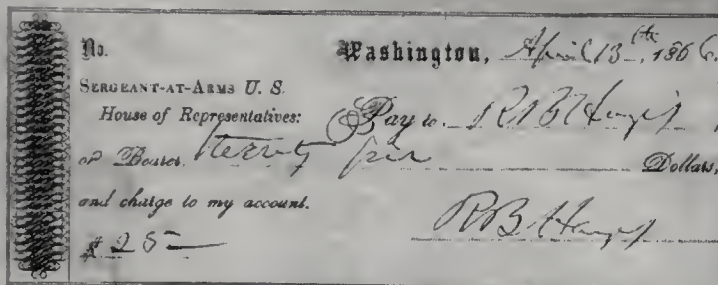 No. Washington, April 13th, 1866.
SERGEANT-AT-ARMS U. S.
House of Representatives: Pay to R B Hayes,
or Bearer, Twenty five Dollars,
and charge to my account.
$25— R. B. Hayes